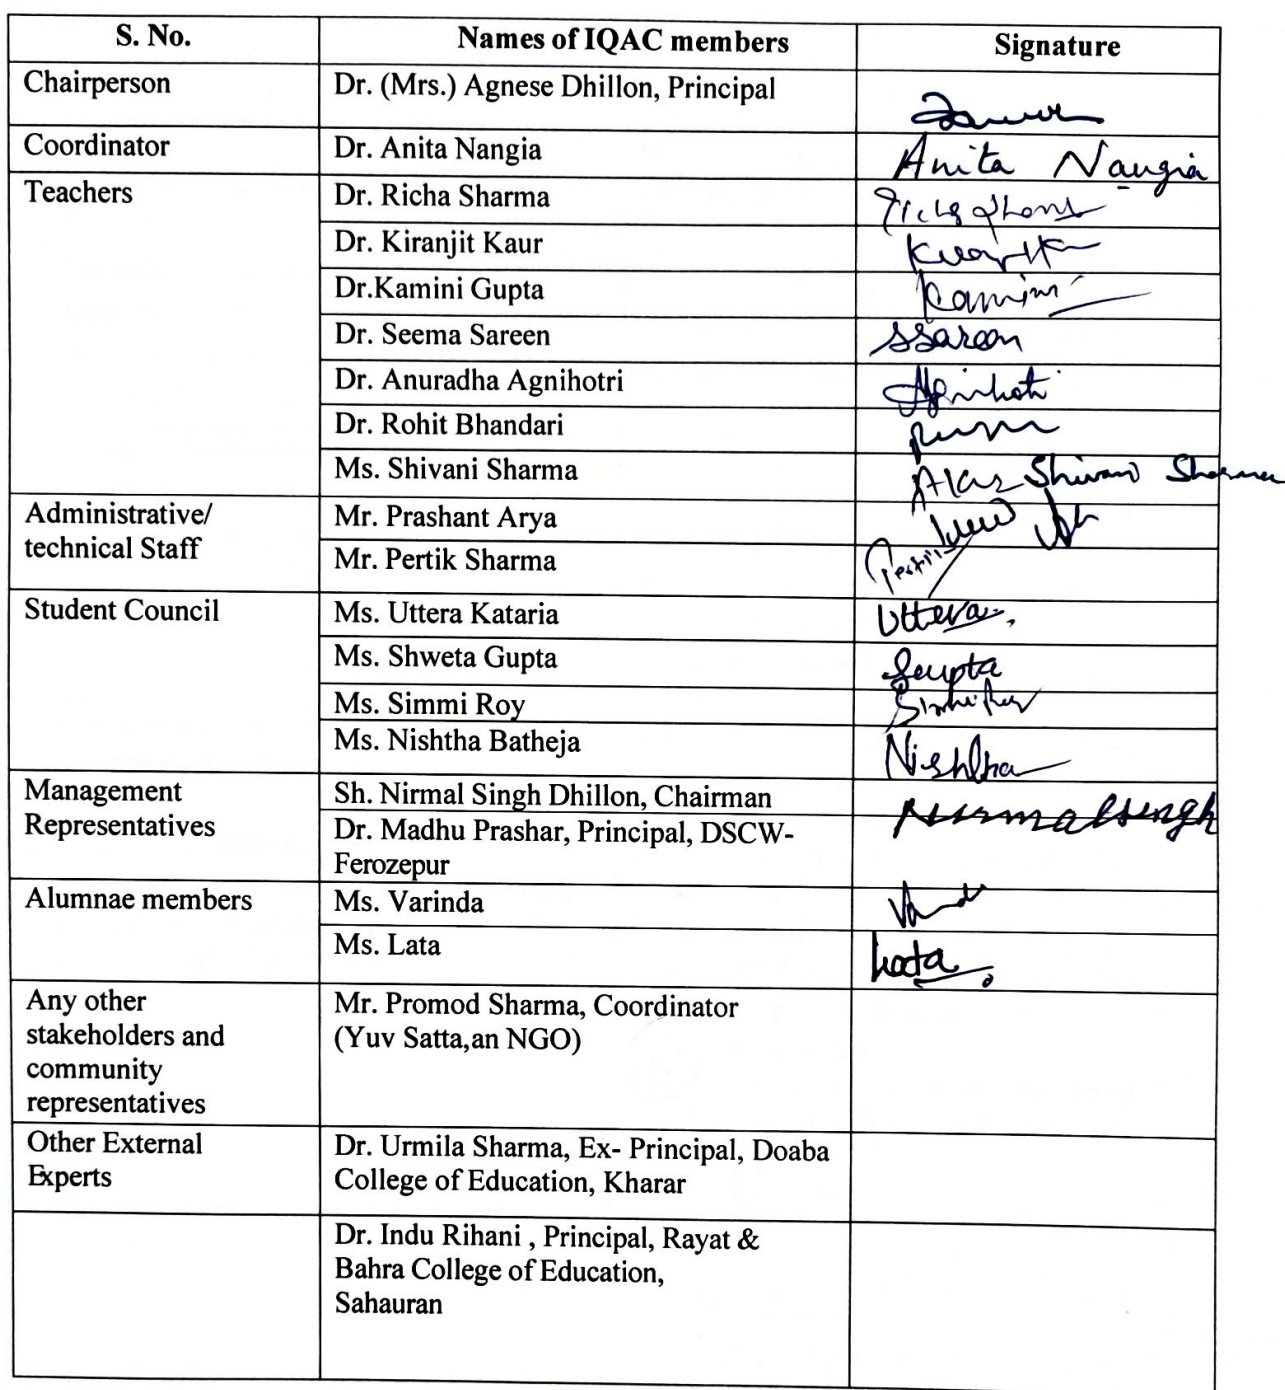 S. No. Names of IQAC members Signature
Chairperson Dr. (Mrs.) Agnese Dhillon, Principal
Coordinator Dr. Anita Nangia Anita Nangia
Teachers Dr. Richa Sharma
Dr. Kiranjit Kaur
Dr.Kamini Gupta Kamini
Dr. Seema Sareen SSareen
Dr. Anuradha Agnihotri Agnihotri
Dr. Rohit Bhandari
Ms. Shivani Sharma Shivani Sharma
Administrative/ Mr. Prashant Arya
technical Staff
Mr. Pertik Sharma
Student Council Ms. Uttera Kataria Uttera
Ms. Shweta Gupta Gupta
Ms. Simmi Roy
Ms. Nishtha Batheja Nishtha
Management Sh. Nirmal Singh Dhillon, Chairman Nirmal Singh
Representatives Dr. Madhu Prashar, Principal, DSCW-
Ferozepur
Alumnae members Ms. Varinda
Ms. Lata Lata
Any other Mr. Promod Sharma, Coordinator
stakeholders and (Yuv Satta,an NGO)
community
representatives
Other External Dr. Urmila Sharma, Ex- Principal, Doaba
Experts College of Education, Kharar
Dr. Indu Rihani , Principal, Rayat &
Bahra College of Education,
Sahauran